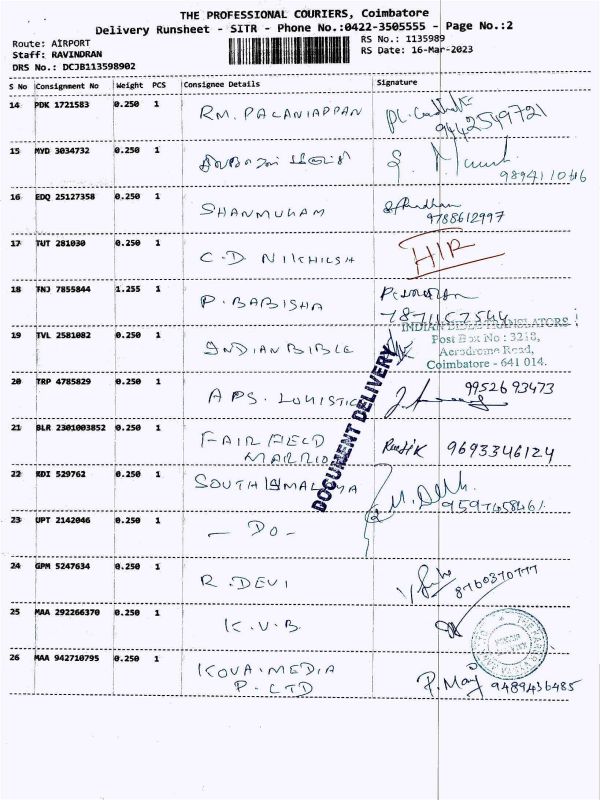 THE PROFESSIONAL COURIERS, Coimbatore
Delivery Runsheet - SITR - Phone No.:0422-3505555 - Page No.:2
Route: AIRPORT
Staff: RAVINDRAN
DRS No.: DCJB113598902
RS No.: 1135989
RS Date: 16-Mar-2023
S No Consignment No Weight PCS Consignee Details Signature
14 PDK 1721583 0.250 1 RM. PALANIAPPAN
9442549721
15 MYD 3034732 0.250 1
9894110646
16 EDQ 25127358 0.250 1 SHANMUGAM
9788612997
17 TUT 281030 0.250 1 C.D NIKHILSH HIR
18 TNJ 7855844 1.255 1 P. BABISHA
7871157544
19 TVL 2581082 0.250 1 INDIAN BIBLE
INDIAN BIBLE TRANSLATORS
Post Box No : 3218,
Aerodrome Road,
Coimbatore - 641 014.
20 TRP 4785829 0.250 1 APS. LOGISTICS 9952693473
DOCUMENT DELIVERY
21 BLR 2301003852 0.250 1 FAIR FIELD
MARRIO 9693346124
22 KDI 529762 0.250 1 SOUTH
9597458461
23 UPT 2142046 0.250 1 - DO -
24 GPM 5247634 0.250 1 R. DEVI 8760370777
25 MAA 292266370 0.250 1 K.V.B
26 MAA 942710795 0.250 1 KOVA. MEDIA
P. LTD 9489436485